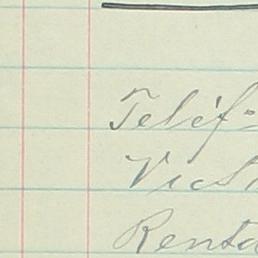 Teléf.
Vict
Renta